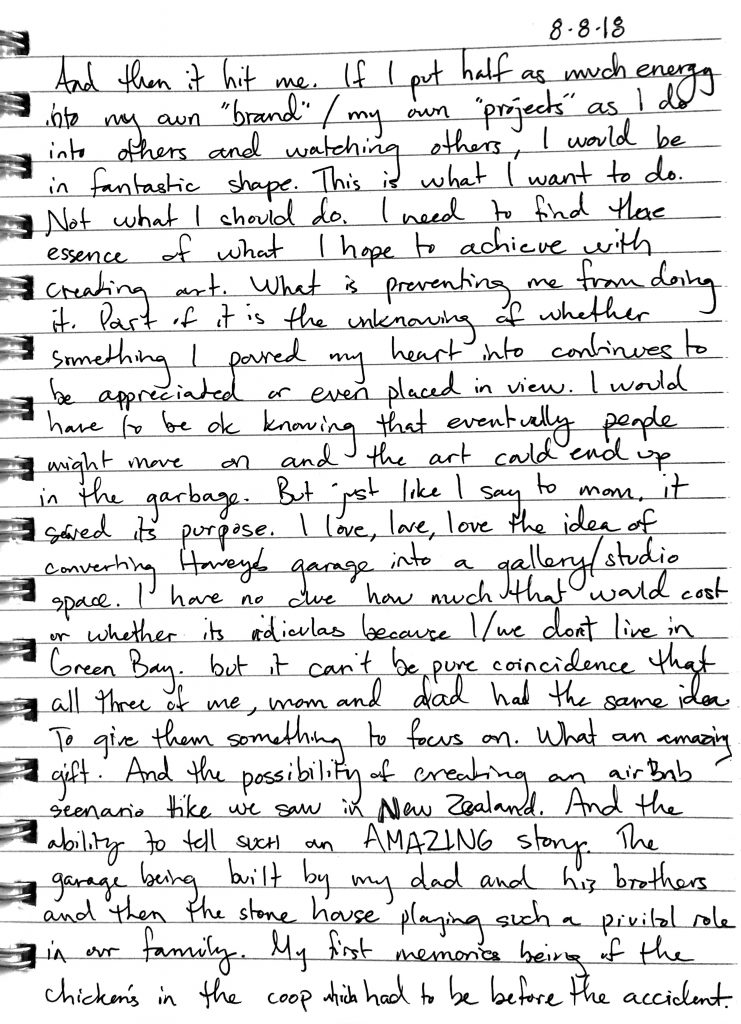 8-8-18
And then it hit me. If I put half as much energy
into my own "brand" / my own "projects" as I do
into others and watching others, I would be
in fantastic shape. This is what I want to do.
Not what I should do. I need to find there
essence of what I hope to achieve with
creating art. What is preventing me from doing
it. Part of it is the unknowing of whether
something I poured my heart into continues to
be appreciated or even placed in view. I would
have to be ok knowing that eventually people
might move on and the art could end up
in the garbage. But just like I say to mom, it
served its purpose. I love, love, love the idea of
converting garage into a gallery/studio
space. I have no clue how much that would cost
or whether its ridiculas because I/we don't live in
Green Bay. but it can't be pure coincidence that
all three of me, mom and dad had the same idea.
To give them something to focus on. What an amazing
gift. And the possibility of creating an airBnb
scenario like we saw in New Zealand. And the
ability to tell such an AMAZING story. The
garage being built by my dad and his brothers
and then the stone house playing such a pivital role
in our family. My first memories being of the
chicken's in the coop which had to be before the accident.